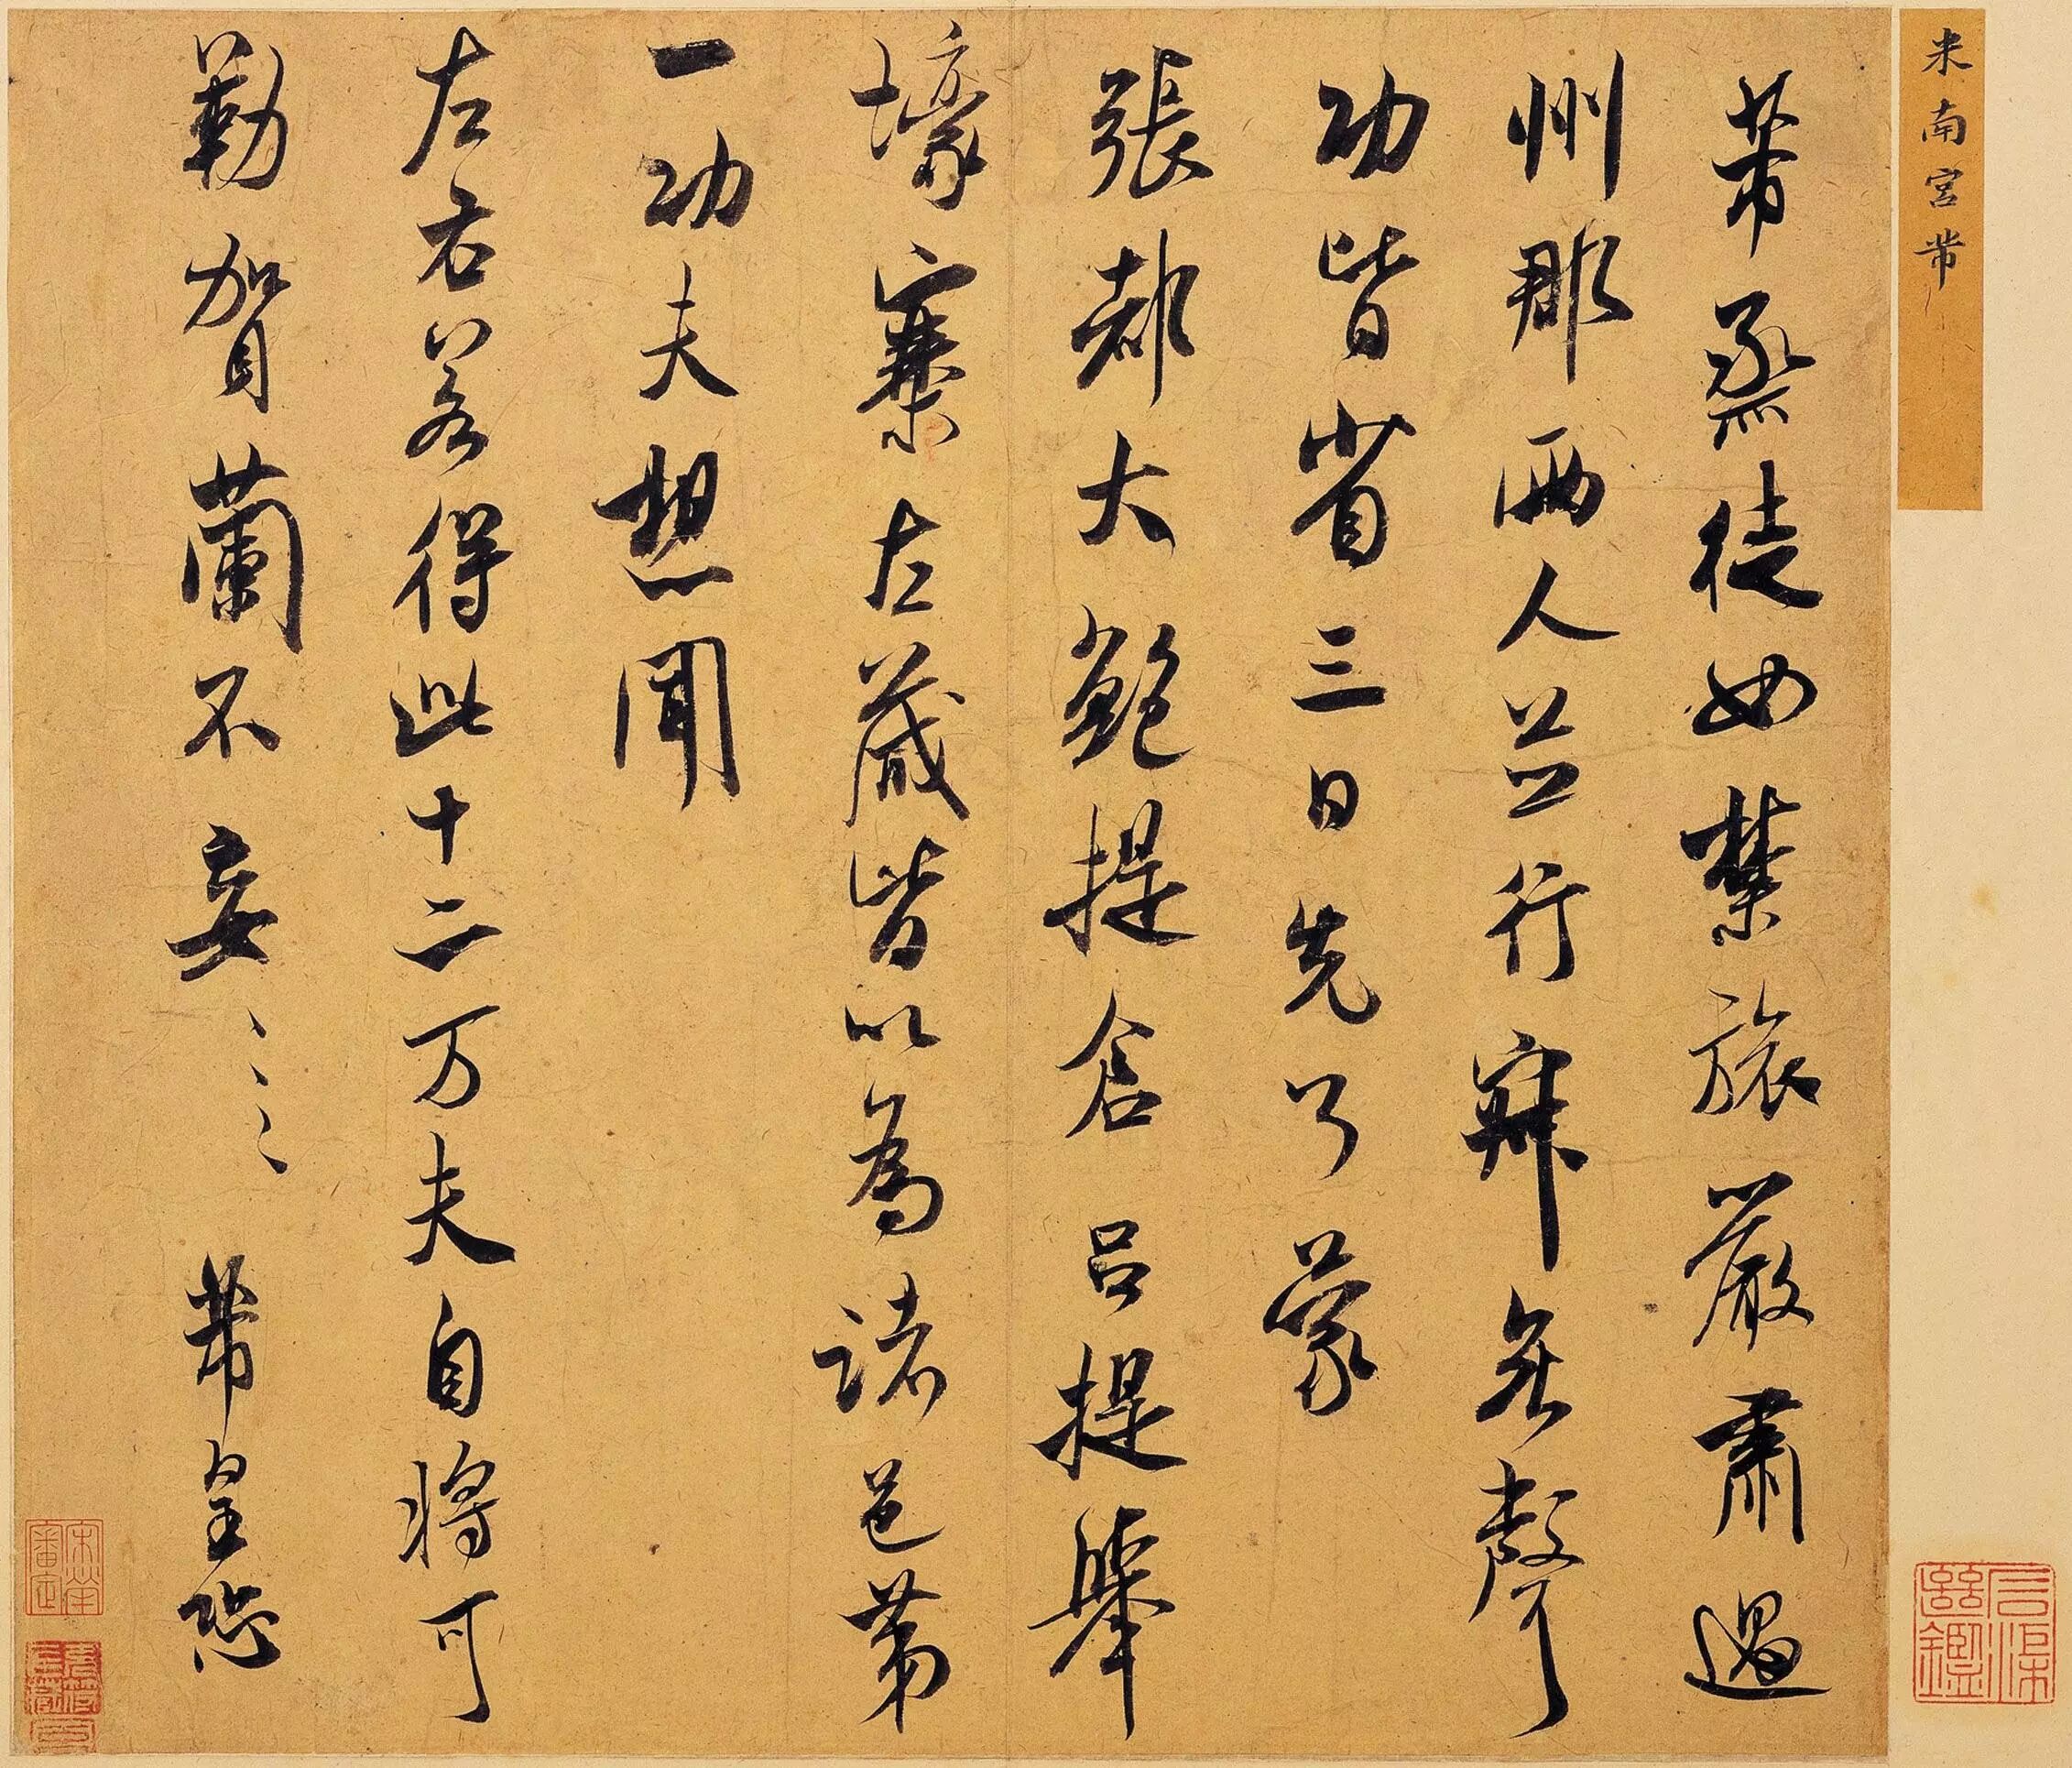 米南宮芾
芾烝徒如禁旅嚴肅過
州郡兩人並行寂無聲
功皆省三日先了蒙
張都大鮑提倉呂提舉
壕寨左藏皆以為諸邑第
一功夫想聞
左右若得此十二万夫自將可
勒賀蘭不妄々々芾皇恐
宋犖審定